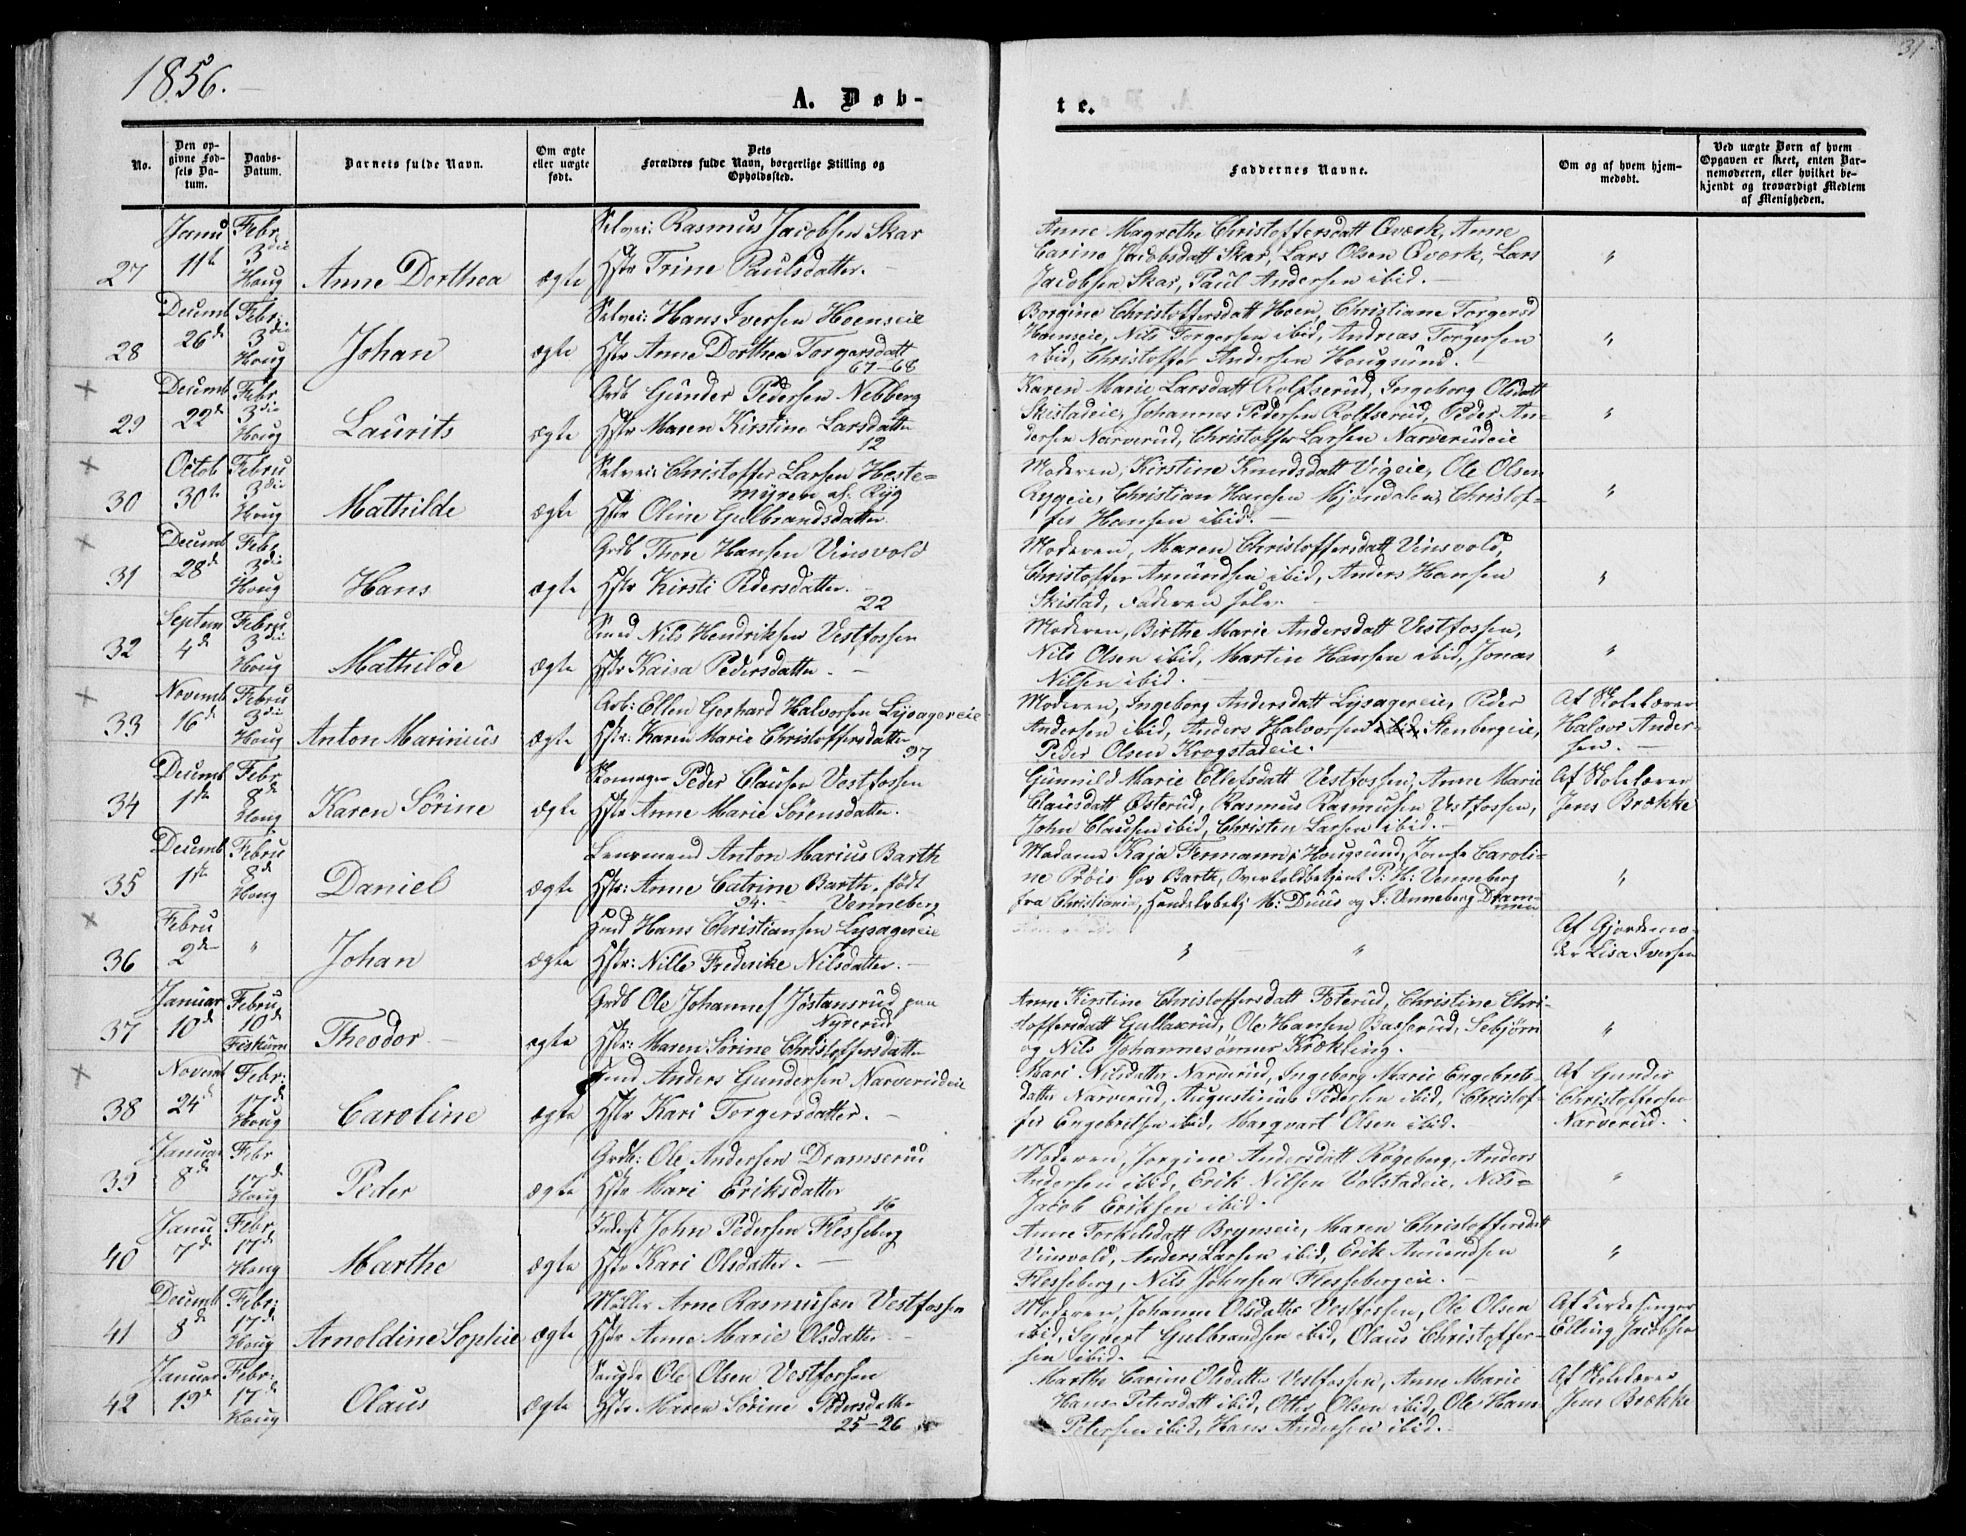 1856.
31
A. Døb-
te.
No.
Den opgivne Fødsels Datum.
Daabs-Datum.
Barnets fulde Navn.
Om ægte eller uægte født.
Dets Forældres fulde Navn, borgerlige Stilling og Opholdssted.
Faddernes Navne.
Om og af hvem hjemmedøbt.
Ved uægte Børn af hvem Opgaven er skeet, enten Barnemoderen, eller hvilket bekjendt og troværdigt Medlem af Menigheden.
27 Janu 11te Febr. 3die Houg Anne Dorthea ægte
Selvei: Rasmus Jacobsen Skar
Hstr Trine Paulsdatter.
Anne Magrethe Christoffersdatt Qværk, Anne
Carine Jacobsdatt Skar, Lars Olsen Qværk, Lars
Jacobsen Skar, Paul Andersen ibid.
28 Decemb 26de Febr: 3die Houg Johan ægte
Selvei: Hans Iversen Hoenseie
Hstr Anne Dorthea Torgersdatt
67-68
Borgine Christoffersdatt Hoen, Christiane Torgersd
Hoenseie, Nils Torgersen ibid, Andreas Torgersen
ibid, Christoffer Andersen Hougsund.
29 Decemb 22de Febr. 3die Houg Laurits ægte
Grdb Gunder Pedersen Nebberg
Hstr Maren Kirstine Larsdatter
12
Karen Marie Larsdatt Rolfserud, Ingeborg Olsdatt
Skistadeie, Johannes Pedersen Rolfserud, Peder An-
dersen Narverud, Christoffer Larsen Narverudeie
30 Octob 30te Febru 3die Houg Mathilde ægte
Selvei: Christoffer Larsen Heste-
myren af Ryg
Hstr Oline Gulbrandsdatter
Moderen, Kirstine Knudsdatt Vigeie, Ole Olsen
Rygeie, Christian Hansen Mjøndalen, Christof-
fer Hansen ibid.
31 Decemb 28de Febr. 3die Houg Hans ægte
Grdb Thore Hansen Vinsvold
Hstr Kirsti Pedersdatter.
22
Moderen, Maren Christoffersdatt Vinsvold,
Christoffer Amundsen ibid, Anders Hansen
Skistad, Faderen selv.
32 Septem 4de Febru 3die Houg Mathilde ægte
Smed Nils Hendriksen Vestfossen
Hstr Kaisa Pedersdatter.
Moderen, Birthe Marie Andersdatt Vestfossen,
Nils Olsen ibid, Martin Hansen ibid, Jonas
Nilsen ibid.
33 Novemb 16de Febru 3die Houg Anton Marinius ægte
Arb: Ellen Gerhard Halvorsen Lysagereie
Hstr: Karen Marie Christoffersdatter
97
Moderen, Ingeborg Andersdatt Lysagereie, Peder
Andersen ibid, Anders Halvorsen ibid, Stenbergeie,
Peder Olsen Krogstadeie.
Af Skolelærer
Halvor Ander-
sen.
34 Decemb 1ste Febr 8de Houg Karen Sörine ægte
Skomager Peder Clausen Vestfossen
Hstr Anne Marie Sörensdatter.
Gunnild Marie Ellefsdatt Vestfossen, Anne Marie
Clausdatt Østerud, Rasmus Rasmusen Vestfossen,
John Clausen ibid, Christen Larsen ibid.
Af Skolelærer
Jens Brække
35 Decemb 1ste Febru 8de Houg Daniel ægte
Lensmand Anton Marius Barth
Hstr: Anne Catrine Barth, født
94. Venneberg
Madame Kaja Fermann i Hougsund, Jomfr Caroli-
ne Prøis hos Barth, Overtoldbetjent P: H: Venneberg
fra Christiania, Handelsbetj M: Duus og S: Venneberg Dram-
men
36 Febru 2de Johan ægte
Hans Christiansen Lysagereie
Hstr: Nille Frederike Nilsdatter.
Af Gjordemo-
der Lisa Iversen
37 Januar 10de Febru 10de Fiskum Theodor ægte
Grdb Ole Johannes Jøstansrud paa
Nyrerud
Hstr: Maren Sörine Christoffersdatter
Anne Kirstine Christoffersdatt Foterud, Christine Chri-
stoffersdatt Gullaxrud, Ole Hansen Basserud, Sebjørn
og Nils Johannesønner Krækling.
38 Novemb 24de Febr: 17de Houg Caroline ægte
Anders Gundersen Narverudeie
Hstr Kari Torgersdatter.
Kari Nilsdatter Narverud, Ingeborg Marie Engebrets-
datter Narverud, Augustinus Pedersen ibid, Christof-
fer Engebritsen ibid, Marqvart Olsen ibid.
Af Gunder
Christoffersen
Narverud.
39 Januar 8de Febr 17de Houg Peder ægte
Grdb: Ole Andersen Dramserud
Hstr Mari Eriksdatter
16
Moderen, Jorgine Andersdatt Røgeberg, Anders
Andersen ibid, Erik Nilsen Volstadeie, Nils-
Jacob Eriksen ibid.
40 Janu 7de Febr. 17de Houg Marthe ægte
Inderst John Pedersen Flesseberg
Hstr Kari Olsdatter.
Anne Torkilsdatt Brynseie, Maren Christoffersdatt
Vinsvold, Anders Larsen ibid, Erik Amundsen
Flesseberg, Nils Johnsen Flessebergeie.
41 Decemb 8de Febr: 17de Houg Arnoldine Sophie ægte
Møller Arne Rasmusen Vestfossen
Hstr Anne Marie Olsdatter
Moderen, Johanne Olsdatter Vestfossen, Ole Olsen
ibid, Syvert Gulbrandsen ibid, Olaus Christoffer-
sen ibid.
Af Kirkesanger
Elling Jacobsen
42 Januar 19de Febr: 17de Houg Olaus ægte
Ole Olsen Vestfossen
Hstr Maren Sörine Pedersdatter
25-26
Marthe Carine Olsdatter Vestfossen, Anne Marie
Hans Petersdatt ibid, Otter Olsen ibid, Ole Hans
Petersen ibid, Hans Andersen ibid.
Af Skolelærer
Jens Brække